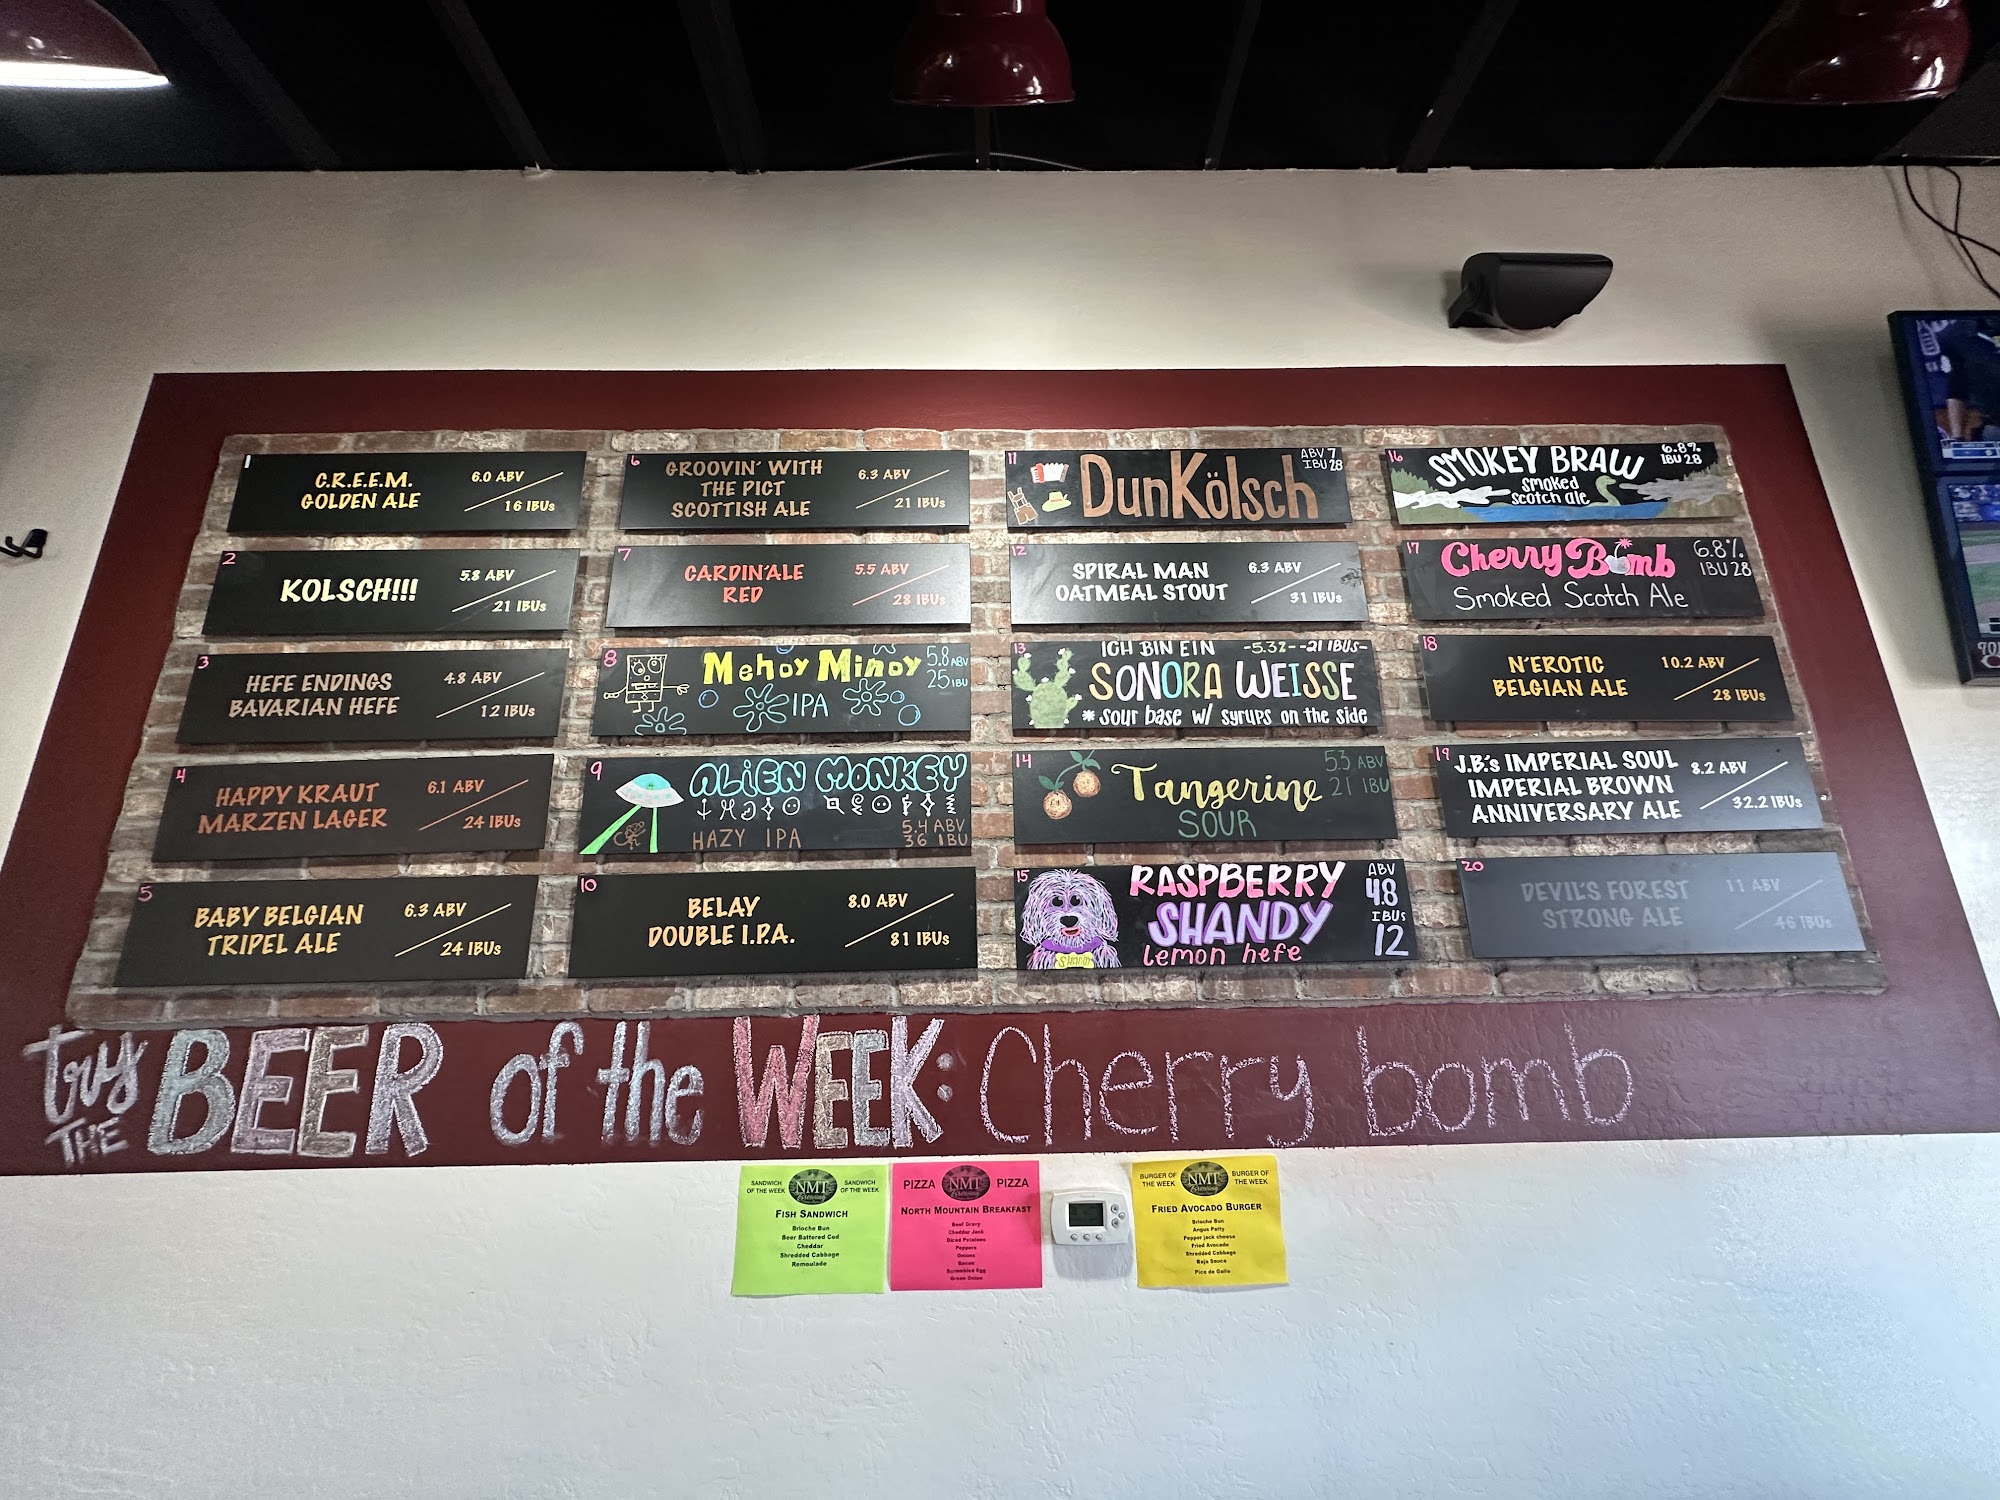 1
C.R.E.E.M.
GOLDEN ALE
6.0 ABV
16 IBUs
2
KOLSCH!!!
5.8 ABV
21 IBUs
3
HEFE ENDINGS
BAVARIAN HEFE
4.8 ABV
12 IBUs
4
HAPPY KRAUT
MARZEN LAGER
6.1 ABV
24 IBUs
5
BABY BELGIAN
TRIPEL ALE
6.3 ABV
24 IBUs
6
GROOVIN' WITH
THE PICT
SCOTTISH ALE
6.3 ABV
21 IBUs
7
CARDIN'ALE
RED
5.5 ABV
28 IBUs
8
Mehoy Minoy
IPA
5.8 ABV
25 IBU
9
ALiEN MONKEY
HAZY IPA
5.4 ABV
36 IBU
10
BELAY
DOUBLE I.P.A.
8.0 ABV
81 IBUs
11
DunKölsch
ABV 7
IBU 28
12
SPIRAL MAN
OATMEAL STOUT
6.3 ABV
31 IBUs
13
ICH BIN EIN -5.3%--21 IBUs-
SONORA WEISSE
* SOUR BASE W/ SYRUPS ON THE SIDE
14
Tangerine
SOUR
5.3 ABV
21 IBU
15
RASPBERRY
SHANDY
Lemon hefe
ABV
4.8
IBUs
12
16
SMOKEY BRAW
Smoked
Scotch ale
6.8%
IBU 28
17
Cherry Bomb
Smoked Scotch Ale
6.8%
IBU 28
18
N'EROTIC
BELGIAN ALE
10.2 ABV
28 IBUs
19
J.B.'s IMPERIAL SOUL
IMPERIAL BROWN
ANNIVERSARY ALE
8.2 ABV
32.2 IBUs
20
DEVIL'S FOREST
STRONG ALE
11 ABV
46 IBUs
try THE BEER of the WEEK: Cherry bomb
SANDWICH OF THE WEEK
NMT
Brewing
SANDWICH OF THE WEEK
FISH SANDWICH
Brioche Bun
Beer Battered Cod
Cheddar
Shredded Cabbage
Remoulade
PIZZA
NMT
Brewing
PIZZA
NORTH MOUNTAIN BREAKFAST
Beef Gravy
Cheddar Jack
Diced Potatoes
Peppers
Onions
Bacon
Scrambled Egg
Green Onion
BURGER OF THE WEEK
NMT
Brewing
BURGER OF THE WEEK
FRIED AVOCADO BURGER
Brioche Bun
Angus Patty
Pepper jack cheese
Fried Avocado
Shredded Cabbage
Baja Sauce
Pico de Gallo